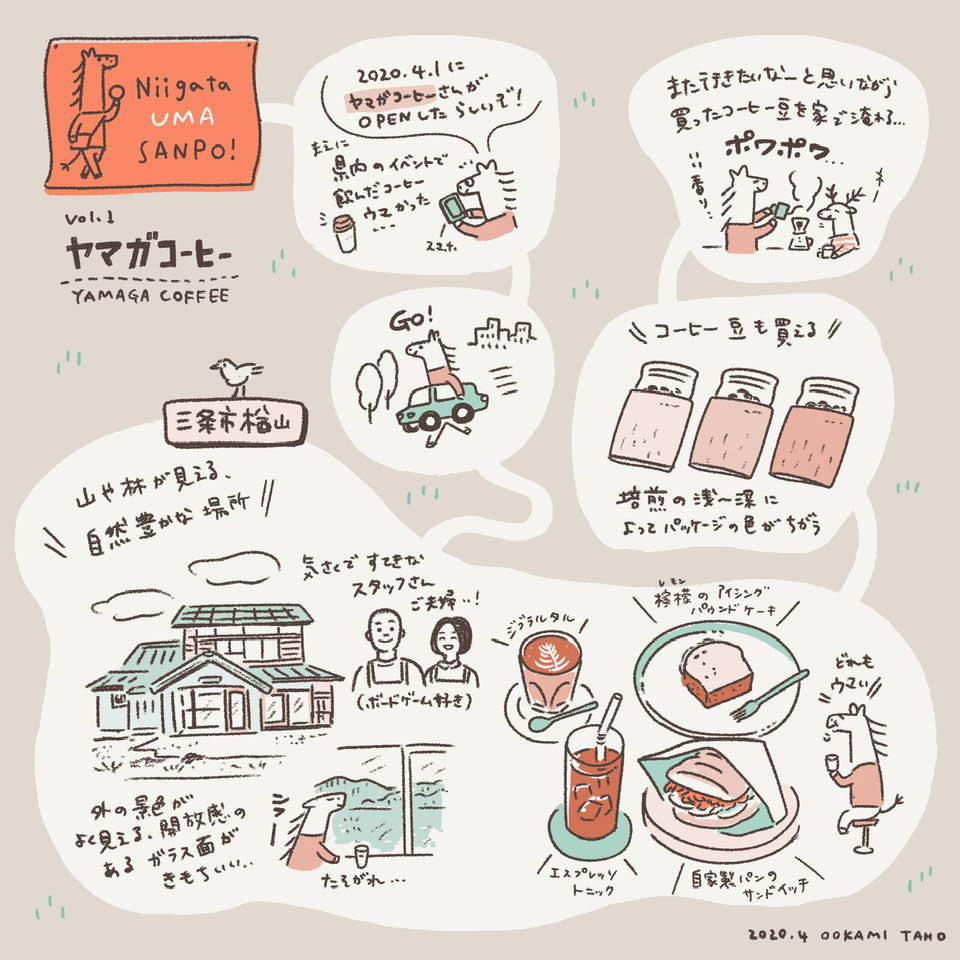 Niigata
UMA
SANPO!
vol.1
ヤマガコーヒー
YAMAGA COFFEE
2020.4.1に
ヤマガコーヒーさんが
OPENしたらしいぞ!
まえに
県内のイベントで
飲んだコーヒー
ウマかった
...
スマホ
Go!
三条市桧山
山や林が見える、
自然豊かな場所
気さくで すてきな
スタッフさん
ご夫婦..!
(ボードゲーム好き)
外の景色が
よく見える、開放感の
ある ガラス面が
きもちいい..
シーー
たそがれ...
ジブラルタル
レモン
檸檬のアイシング
パウンドケーキ
どれも
ウマい
エスプレッソ
トニック
自家製パンの
サンドイッチ
コーヒー豆も買える
焙煎の浅〜深に
よってパッケージの色がちがう
また行きたいなーと思いながら
買ったコーヒー豆を家で淹れる...
ポワポワ...
いい香り...
2020.4 OOKAMI TAHO